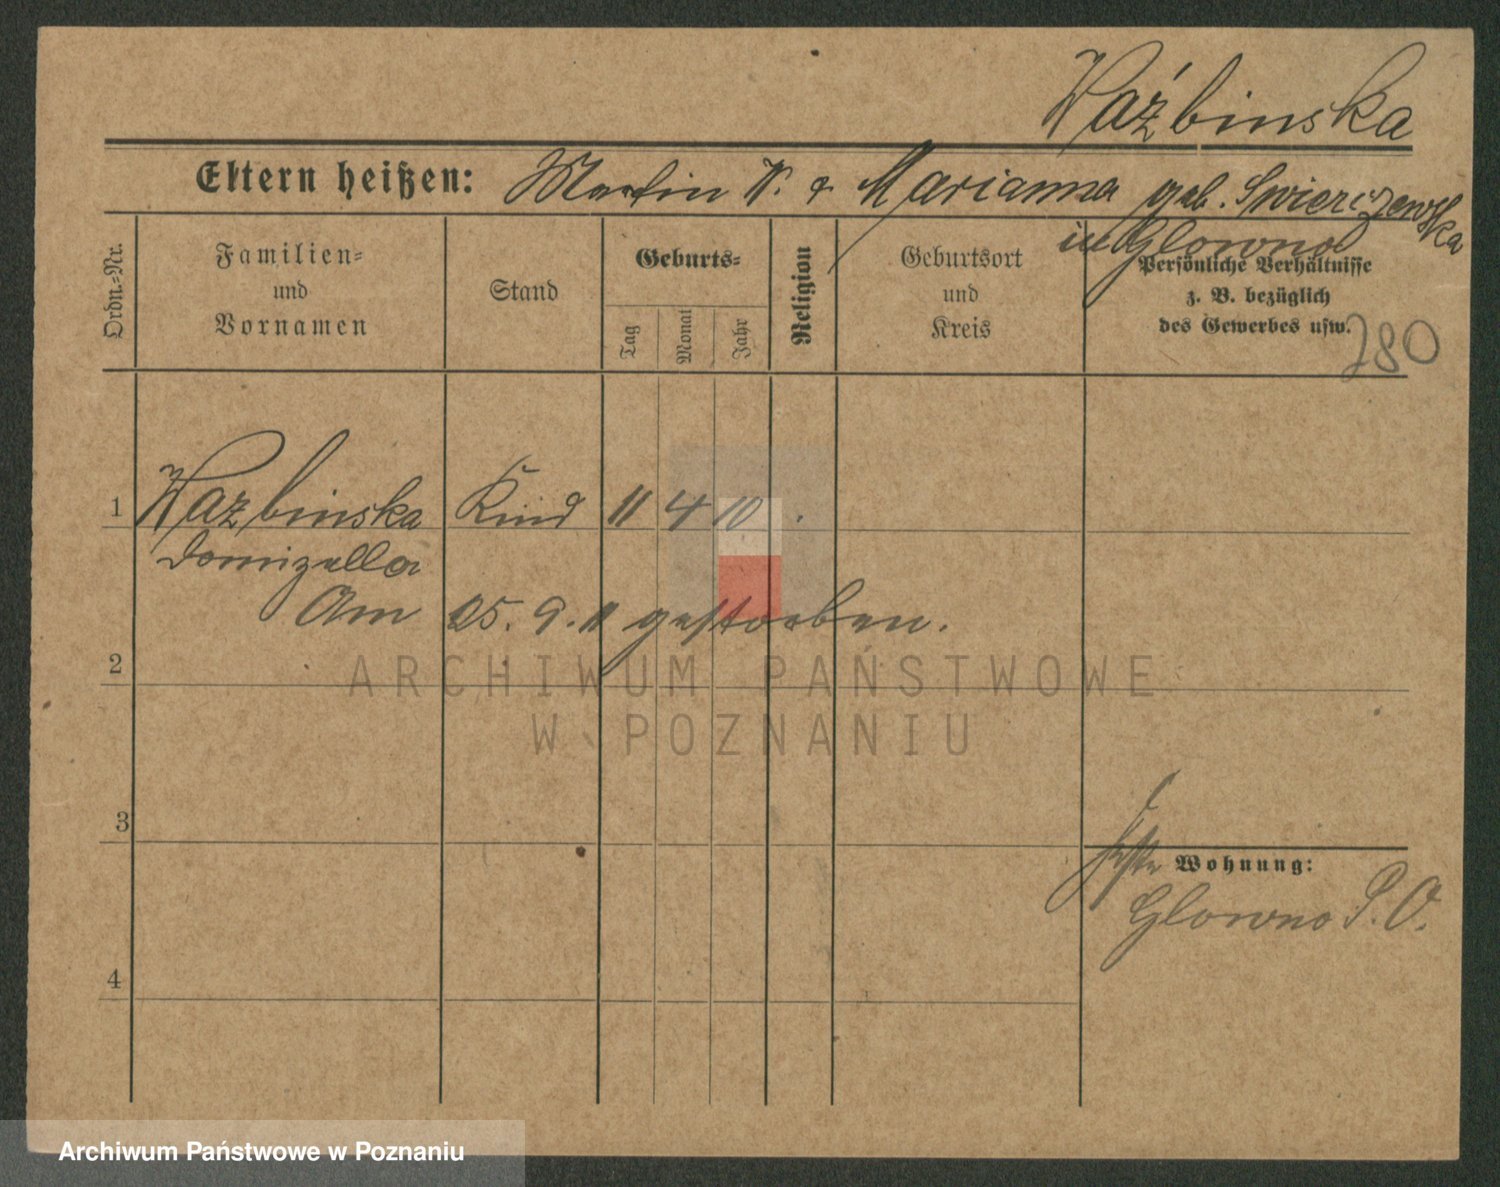 Waźbinska
Eltern heißen: Martin W. & Marianna geb. Swierczewska
in Glowno
Ordn.-Nr.
Familien- und Vornamen
Stand
Geburts-
Tag
Monat
Jahr
Religion
Geburtsort und Kreis
Persönliche Verhältnisse
z. B. bezüglich
des Gewerbes usw.
780
1 Wazbinska Kind 11 4 10
Domizella
Am 25. 9. 11 gestorben.
2
ARCHIWUM PAŃSTWOWE
W POZNANIU
3
Wohnung:
Glowno P. O.
4
Archiwum Państwowe w Poznaniu